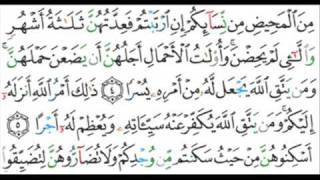 مِنَ الْمَحِيضِ مِن نِّسَآئِكُمْ إِنِ ارْتَبْتُمْ فَعِدَّتُهُنَّ ثَلَـٰثَةُ أَشْهُرٍ
وَالَّـٰٓـِٔى لَمْ يَحِضْنَ ۚ وَأُو۟لَـٰتُ الْأَحْمَالِ أَجَلُهُنَّ أَن يَضَعْنَ حَمْلَهُنَّ ۚ
وَمَن يَتَّقِ اللَّهَ يَجْعَل لَّهُ مِنْ أَمْرِهِ يُسْرًا ﴿٤﴾ ذَٰلِكَ أَمْرُ اللَّهِ أَنزَلَهُ
إِلَيْكُمْ ۚ وَمَن يَتَّقِ اللَّهَ يُكَفِّرْ عَنْهُ سَيِّـَٔاتِهِ وَيُعْظِمْ لَهُ أَجْرًا ﴿٥﴾
أَسْكِنُوهُنَّ مِنْ حَيْثُ سَكَنتُم مِّن وُجْدِكُمْ وَلَا تُضَآرُّوهُنَّ لِتُضَيِّقُوا۟